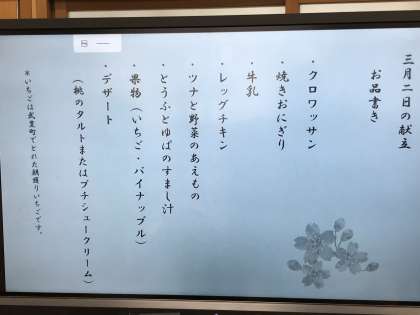 三月二日の献立
お品書き
・クロワッサン
・焼きおにぎり
・牛乳
・レッグチキン
・ツナと野菜のあえもの
・とうふとゆばのすまし汁
・果物(いちご・パイナップル)
・デザート
(桃のタルトまたはプチシュークリーム)
*いちごは武豊町でとれた朝摘りいちごです。